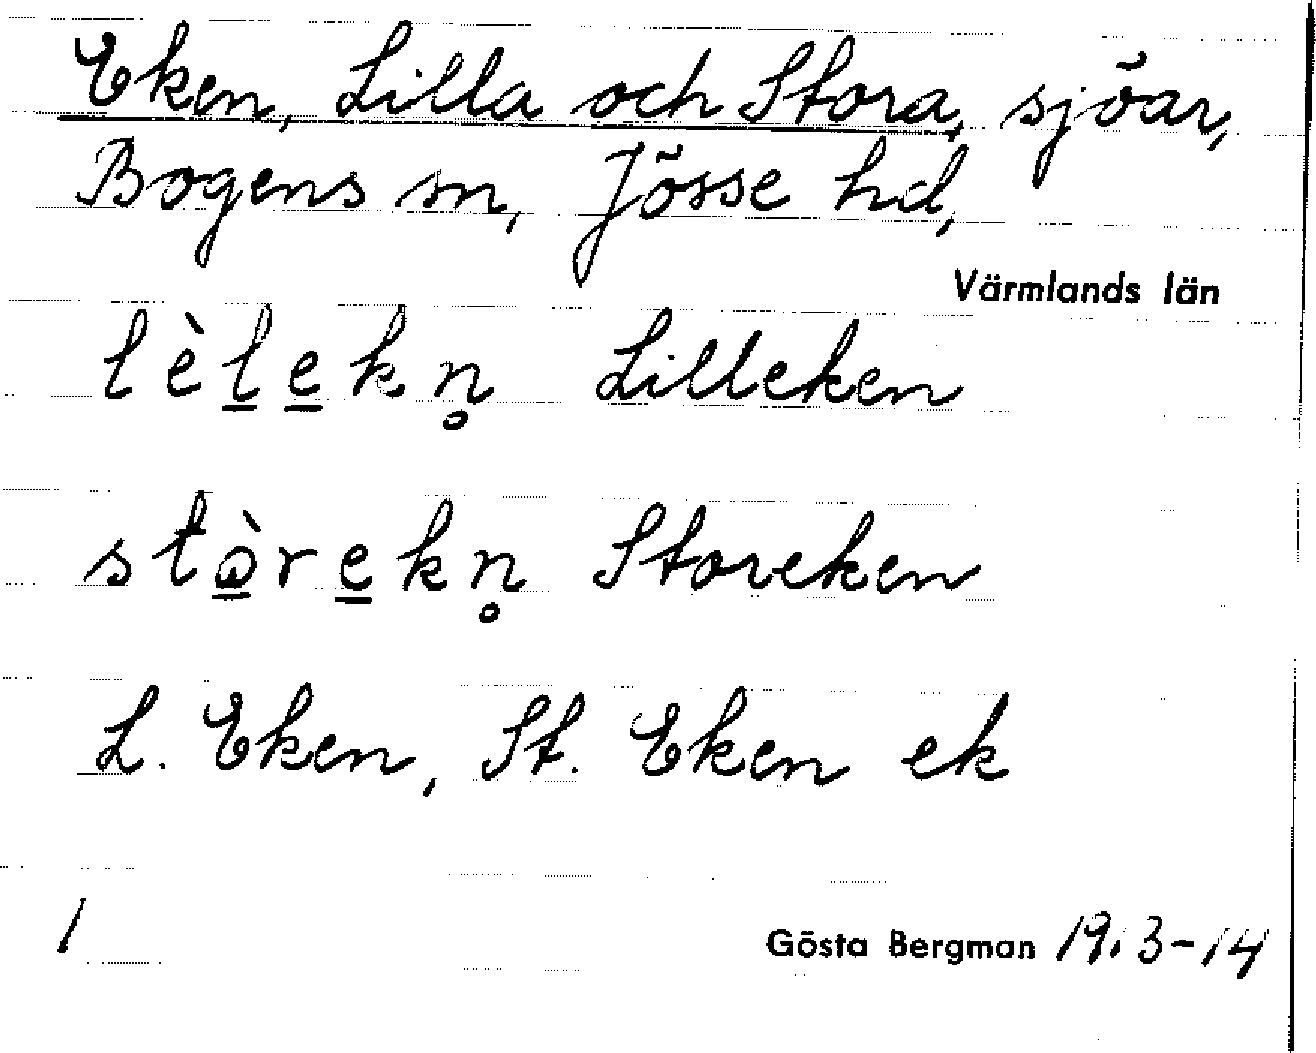 Eken, Lilla och Stora, sjöar,
Bogens sn, Jösse hd,
Värmlands län
lèl̲e̲kn̥ Lilleken
stò̲re̲kn̥ Storeken
L. Eken, St. Eken ek
1
Gösta Bergman 1913-14